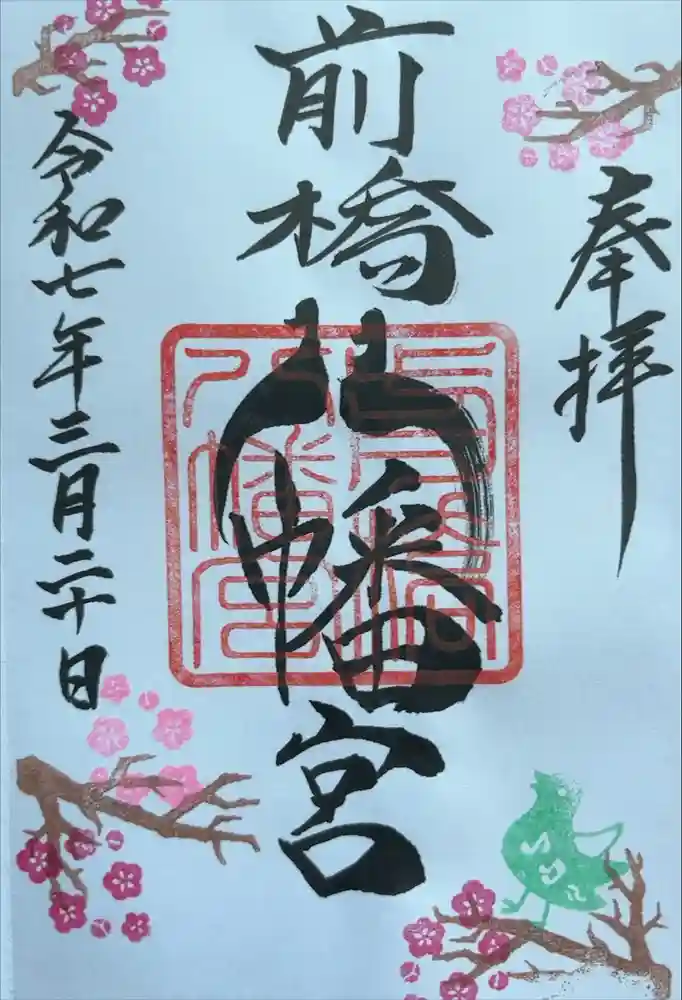 奉拝
前橋八幡宮
令和七年三月二十日